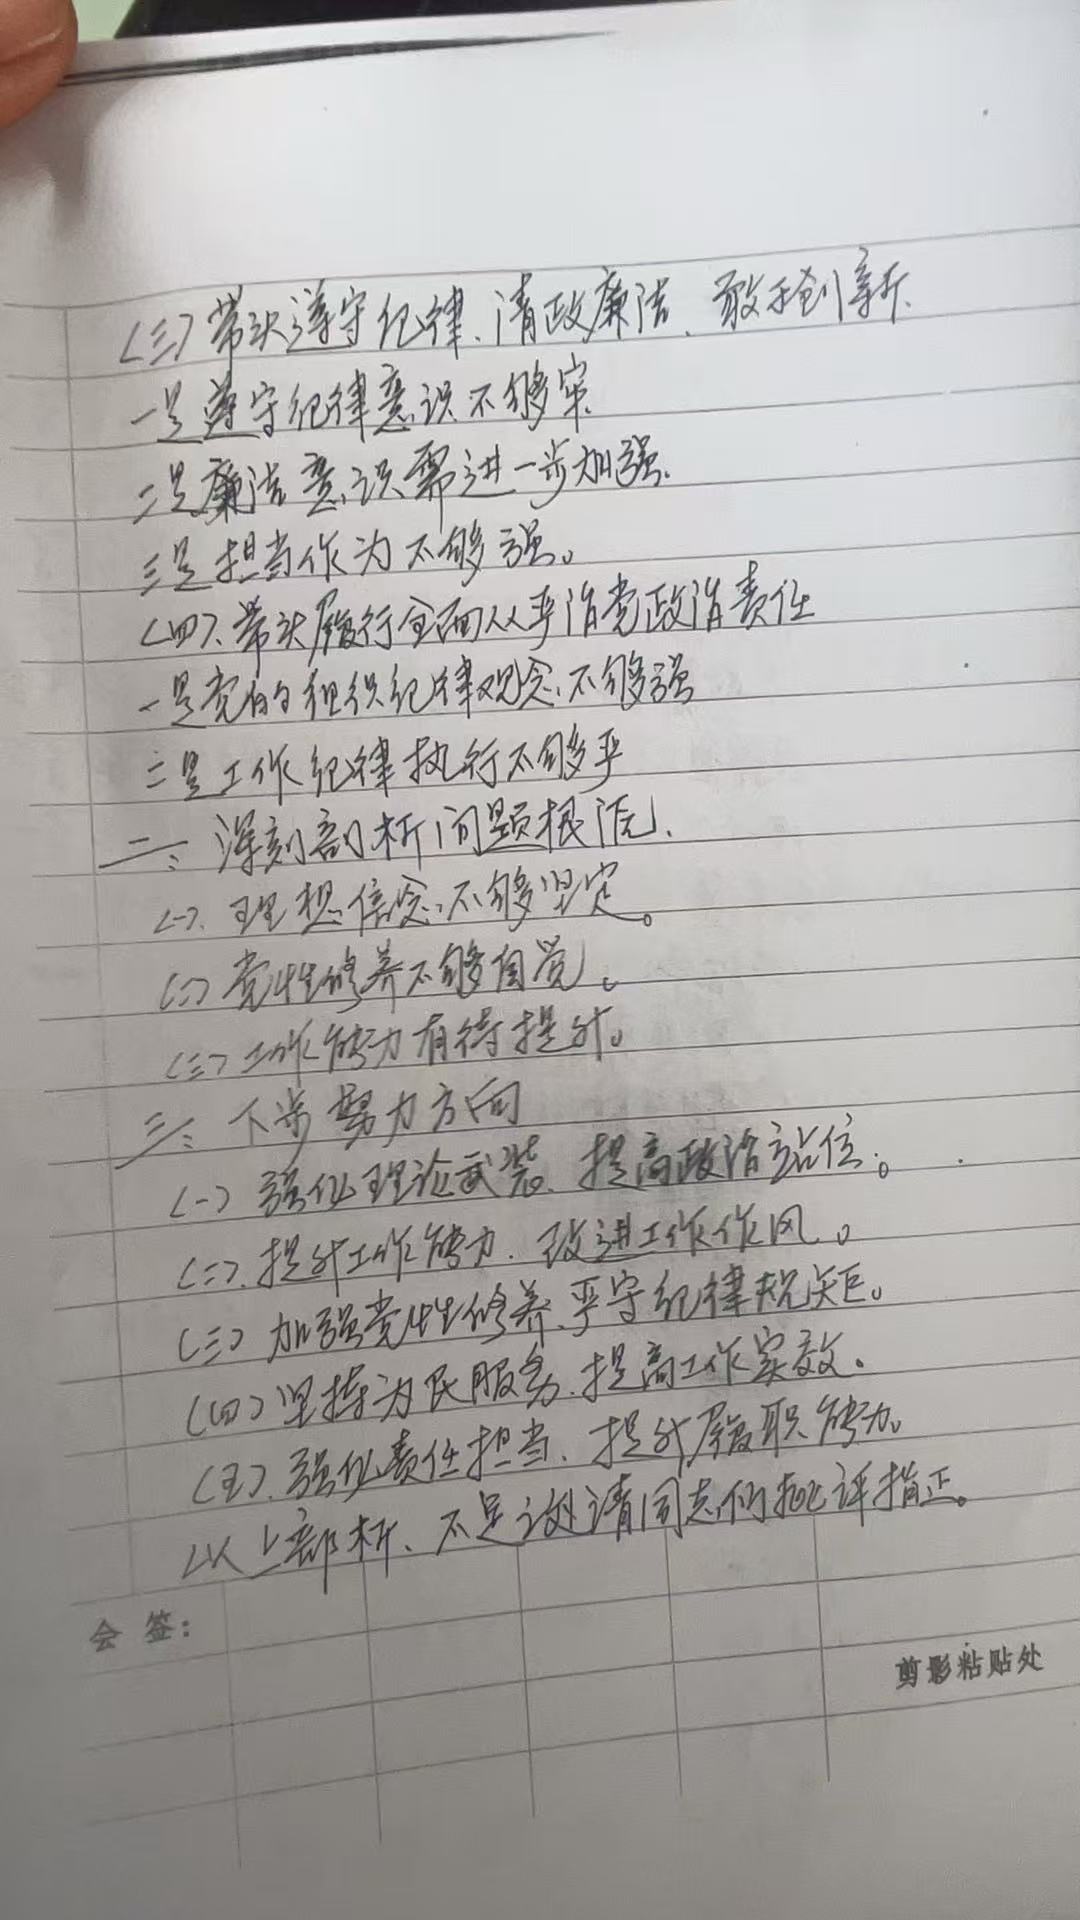 (三)带头遵守纪律、清政廉洁、敢于创新、
一是遵守纪律意识不够牢、
二是廉洁意识需进一步加强、
三是担当作为不够强。
(四)、带头履行全面从严治党政治责任
一是党的组织纪律观念不够强
二是工作纪律执行不够严
二、深刻剖析问题根源、
(一)、理想信念不够坚定。
(二)党性修养不够自觉。
(三)工作能力有待提升。
三、下步努力方向
(一)强化理论武装、提高政治站位。
(二)、提升工作能力、改进工作作风。
(三)加强党性修养、严守纪律规矩。
(四)坚持为民服务、提高工作实效。
(五)、强化责任担当、提升履职能力。
以上剖析、不足之处请同志们批评指正。
会 签:
剪影粘贴处